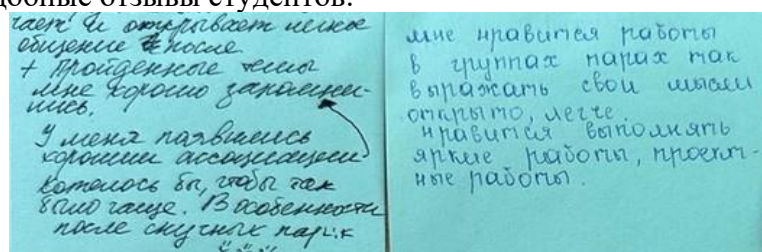 добные отзывы студентов:
чает и открывает легкое
общение после
+ пройденные темы
мне хорошо запомни-
лись.
У меня появились
хорошии ассоциации
хотелось бы, чтобы так
было чаще. В особенности
после скучных пар :к
мне нравится работы
в группах парах так
выражать свои мысли
открыто, легче.
нравится выполнять
яркие работы, проект-
ные работы.